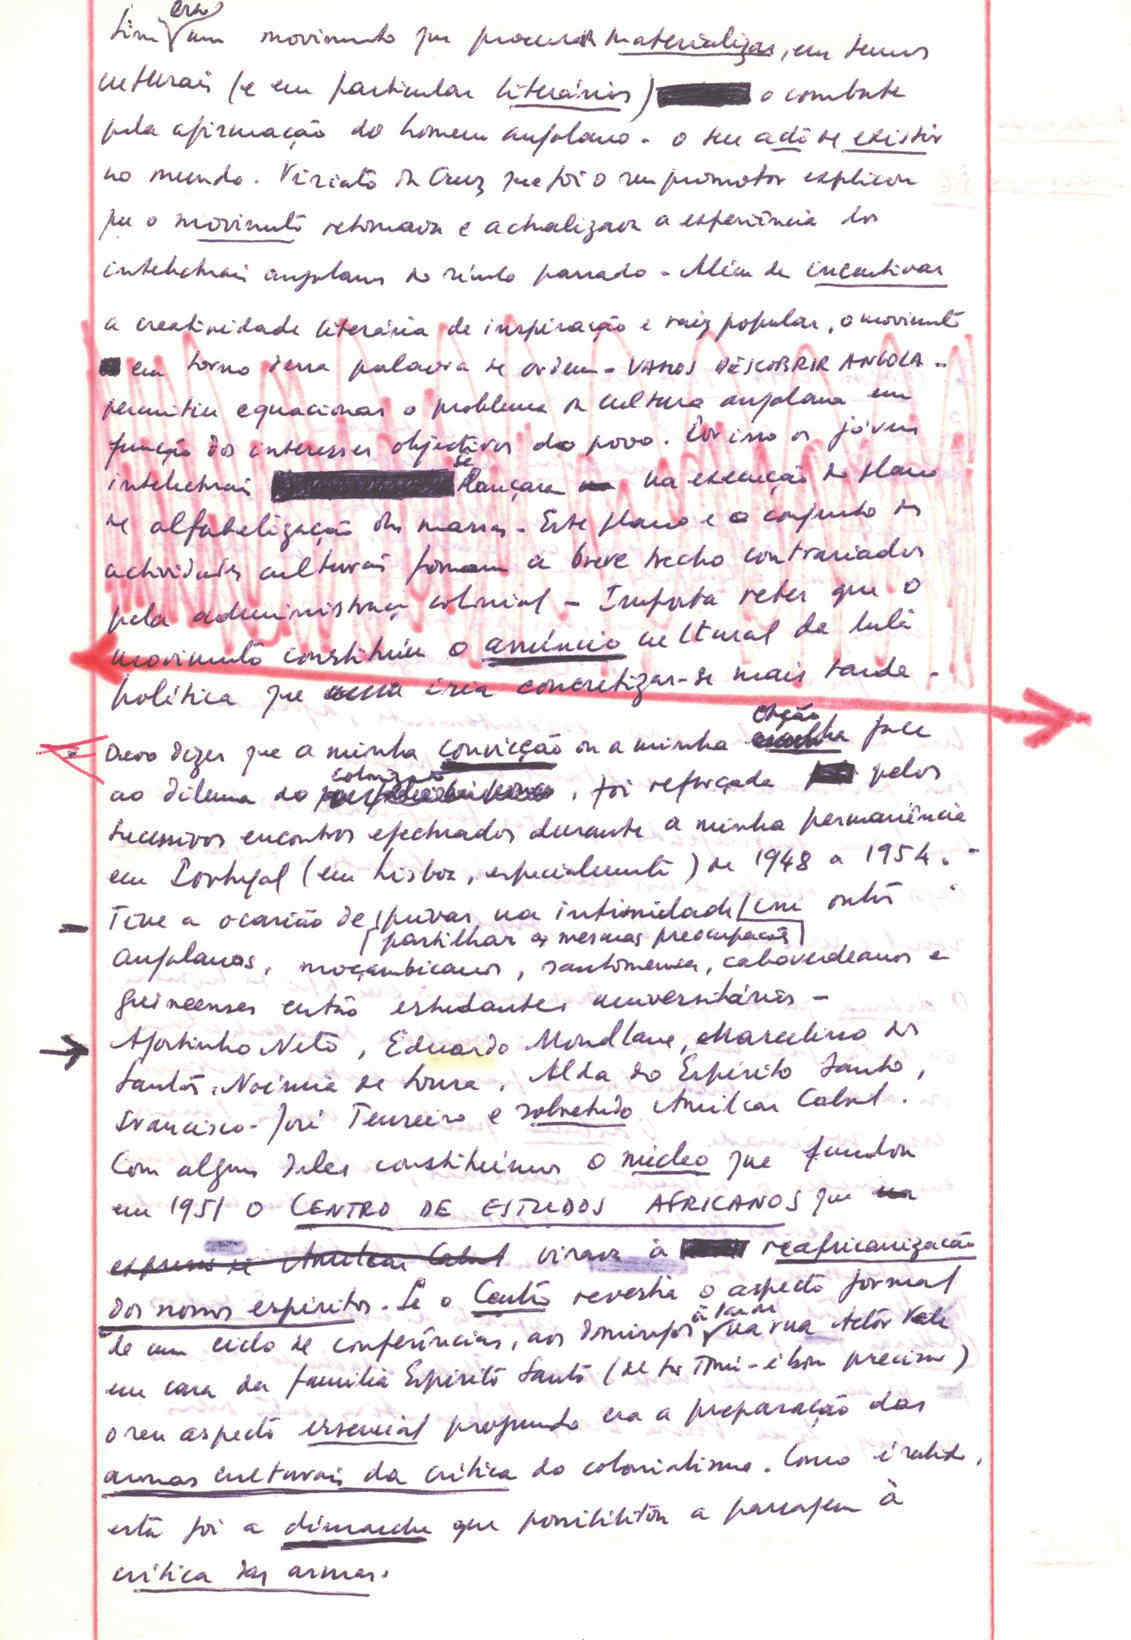 Sim, era um movimento que procurava materializar, em termos
culturais (e em particular literários) o combate
pela afirmação do homem angolano - o seu acto de existir
no mundo. Viriato da Cruz que foi o seu promotor explicou
que o movimento retomava e actualizava a experiência dos
intelectuais angolanos do século passado - Além de incentivar
a creatividade literária de inspiração e raiz popular, o movimento
em torno dessa palavra de ordem - VAMOS DESCOBRIR ANGOLA -
permitiu equacionar o problema da cultura angolana em
função dos interesses objectivos do povo. Por isso os jóvens
intelectuais se lançaram na execução do plano
de alfabetização das massas - Este plano e o conjunto das
actividades culturais foram a breve trecho contrariados
pela administração colonial - Importa reter que o
movimento constituiu o anúncio cultural da luta
política que iria concretizar-se mais tarde -
Devo dizer que a minha convicção ou a minha opção face
ao dilema do colonizado, foi reforçada pelos
sucessivos encontros efectuados durante a minha permanência
em Portugal (em Lisboa, especialmente) de 1948 a 1954. -
Tive a ocasião de privar na intimidade com outros
partilhar as mesmas preocupações
angolanos, moçambicanos, santomenses, caboverdeanos e
guineenses então estudantes universitários -
Agostinho Neto, Eduardo Mondlane, Marcelino dos
Santos, Noémia de Sousa, Alda do Espírito Santo,
Francisco-José Tenreiro e sobretudo Amílcar Cabral.
Com alguns deles constituimos o núcleo que fundou
em 1951 o CENTRO DE ESTUDOS AFRICANOS que
exprime se Amílcar Cabral visava à reafricanização
dos nossos espíritos. Se o Centro revestia o aspecto formal
de um ciclo de conferências, aos domingos à tarde na rua Actor Vale
em casa da família Espírito Santo (de São Tomé - é bom precisar)
o seu aspecto essencial profundo era a preparação das
armas culturais da crítica do colonialismo. Como é sabido,
esta foi a démarche que possibilitou a passagem à
crítica das armas.